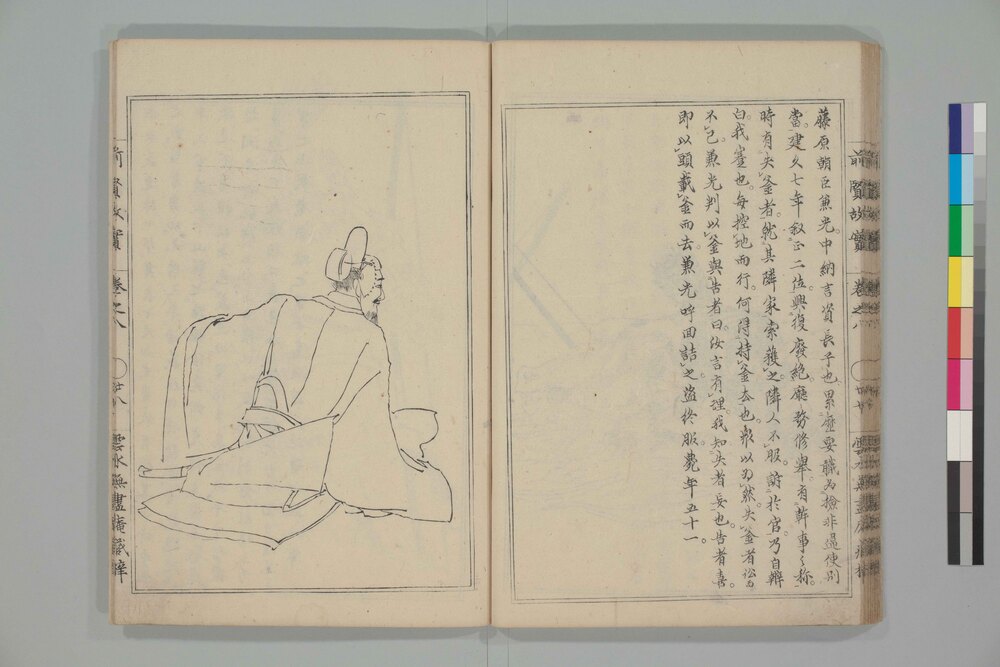 藤原朝臣兼光。中納言資長子也。累歷要職為檢非違使別
當。建久七年叙正二位。興復廢絶廳務修舉。有幹事之称。
時有失釜者。就其隣家索獲之。隣人不服。訴於官。乃自辯
白。我蹇也。每控地而行。何得持釜去也。衆以為然。失釜者訟而
不已。兼光判以釜與告者曰。汝言有理。我知失者妄也。告者喜。
即以頭戴釜而去。兼光呼回詰之。盗終服。薨年五十一。
前賢故實
卷之八
前賢故實
卷之八
廿八
雲水無盡庵藏梓